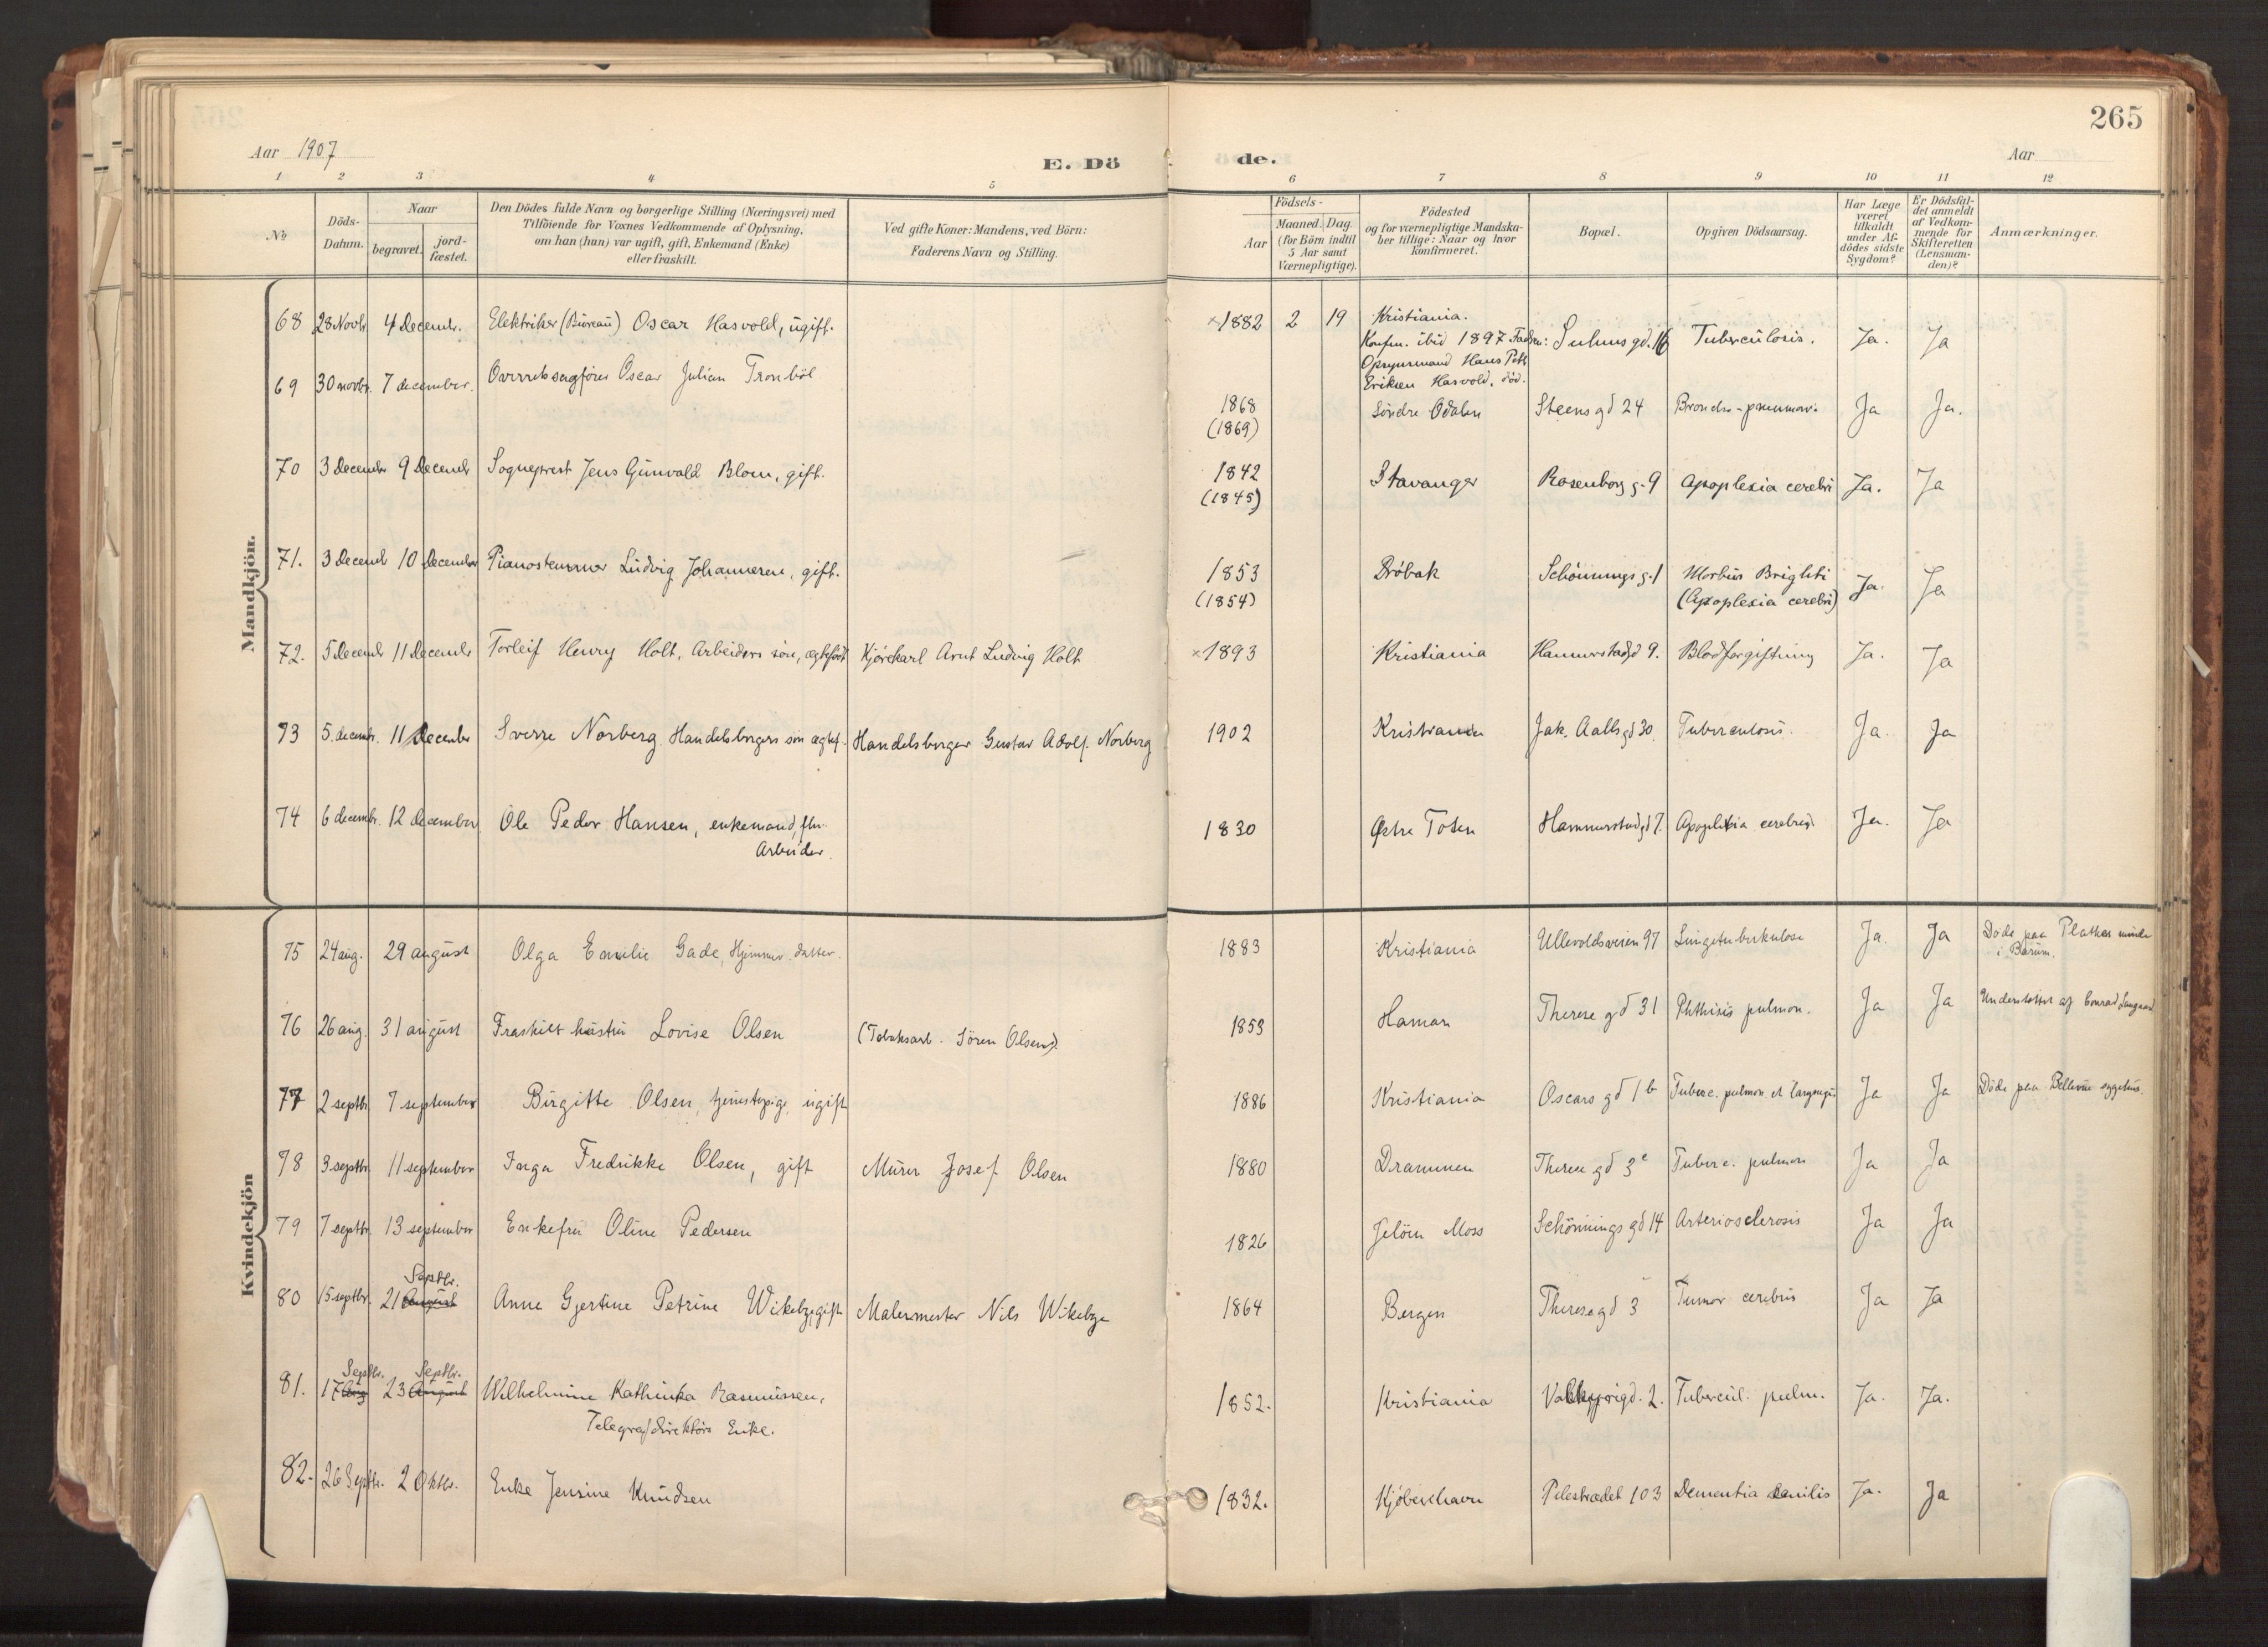 265
Aar 1907
E. Dö de.
Aar
1 2 3 4 5 6 7 8 9 10 11 12
No
Döds-Datum.
Naar
begravet. jord-fæstet.
Den Dödes fulde Navn og borgerlige Stilling (Næringsvei) med
Tilföiende for Voxnes Vedkommende af Oplysning,
om han (hun) var ugift, gift, Enkemand (Enke)
eller fraskilt.
Ved gifte Koner: Mandens, ved Börn:
Faderens Navn og Stilling.
Födsels-
Aar
Maaned. Dag.
(for Börn indtil
5 Aar samt
Værnepligtige).
Födested
og for værnepligtige Mandska-
ber tillige: Naar og hvor
konfirmeret.
Bopæl.
Opgiven Dödsaarsag.
Har Læge
været
tilkaldt
under Af-
dödes sidste
Sygdom?
Er Dödsfal-
det anmeldt
af Vedkom-
mende for
Skifteretten
(Lensman-
den)?
Anmærkninger.
Mandkjön.
68 28 Novbr. 4 Decembr. Elektriker (Büreau) Oscar Hasvold, ugift. ×1882 2 19 Kristiania. Suhmsgd. 16 Tuberculosis. Ja. Ja
Konfm. ibid 1897 Fader:
Opsynsmand Hans Petr
Eriksen Hasvold, död.
69 30 novbr. 7 december. Overretssagförer Oscar Julian Tronböl 1868 Söndre Odalen Steensgd 24 Broncho-pneumoni. Ja Ja.
(1869)
70 3 December 9 Decembr Sogneprest Jens Gunvald Blom, gift. 1842 Stavanger Rosenborg g. 9 Apoplexia cerebri Ja. Ja
(1845)
71. 3 Decembr 10 December Pianostemmer Ludvig Johannesen, gift. 1853 Dröbak Schönnings g. 1 Morbus Brighti Ja. Ja
(1854) (Apoplexia cerebri)
72. 5 Decembr 11 Decembr Torleif Henry Holt, Arbeiders sön, ægtefödt Kjörekarl Arnt Ludvig Holt ×1893 Kristiania Hammerstadgd 9. Blodforgiftning Ja. Ja
73 5. decembr. 11 December Sverre Norberg Handelsborgers sön ægtef. Handelsborger Gustav Adolf Norberg 1902 Kristiania Jak. Aallsgd 30. Tuberculosis. Ja. Ja
74 6 decembr. 12 december Ole Peder Hansen, enkemand, fhv. 1830 Østre Toten Hammerstadgd 7. Apoplexia cerebri. Ja. Ja
Arbeider.
Kvindekjön
75 24 aug. 29 august Olga Emilie Gade, Hjemmev. datter. 1883 Kristiania Ullevoldsveien 97 Lungetuberkulose Ja. Ja Döde paa Plathes minde
i Bærum.
76 26 aug. 31 august Fraskilt hustru Lovise Olsen (Tobaksarb. Sören Olsen). 1853 Hamar Therese gd 31 Phthisis pulmon. Ja Ja Understöttet af Conrad Langaard
77 2 septbr 7 september Birgitte Olsen, tjenestepige, ugift 1886 Kristiania Oscars gd 1 b Tuberc. pulmon. et laryngis Ja Ja Döde paa Bellevue sygehus.
78 3 septbr. 11 september Inga Fredrikke Olsen, gift Murer Josef Olsen 1880 Drammen Therese gd 3c Tuberc. pulmon Ja Ja
79 7 septbr. 13 september Enkefru Oline Pedersen 1826 Jelöen Moss Schönnings gd 14 Arteriosclerosis Ja Ja
Septbr.
80 15 septbr. 21 August Anne Gjertine Petrine Wikebye, gift Malermester Nils Wikebye 1864 Bergen Therese gd 3 Tumor cerebris Ja Ja
Septbr. Septbr.
81. 17 Aug 23 August Wilhelmine Kathinka Rasmussen, 1852. Kristiania Valkyrigd. 2. Tubercul. pulm. Ja. Ja.
Telegrafdirektörs Enke.
82. 26 Septbr. 2 Oktbr. Enke Jensine Knudsen 1832. Kjöbenhavn Pilestrædet 103 Dementia senilis Ja. Ja